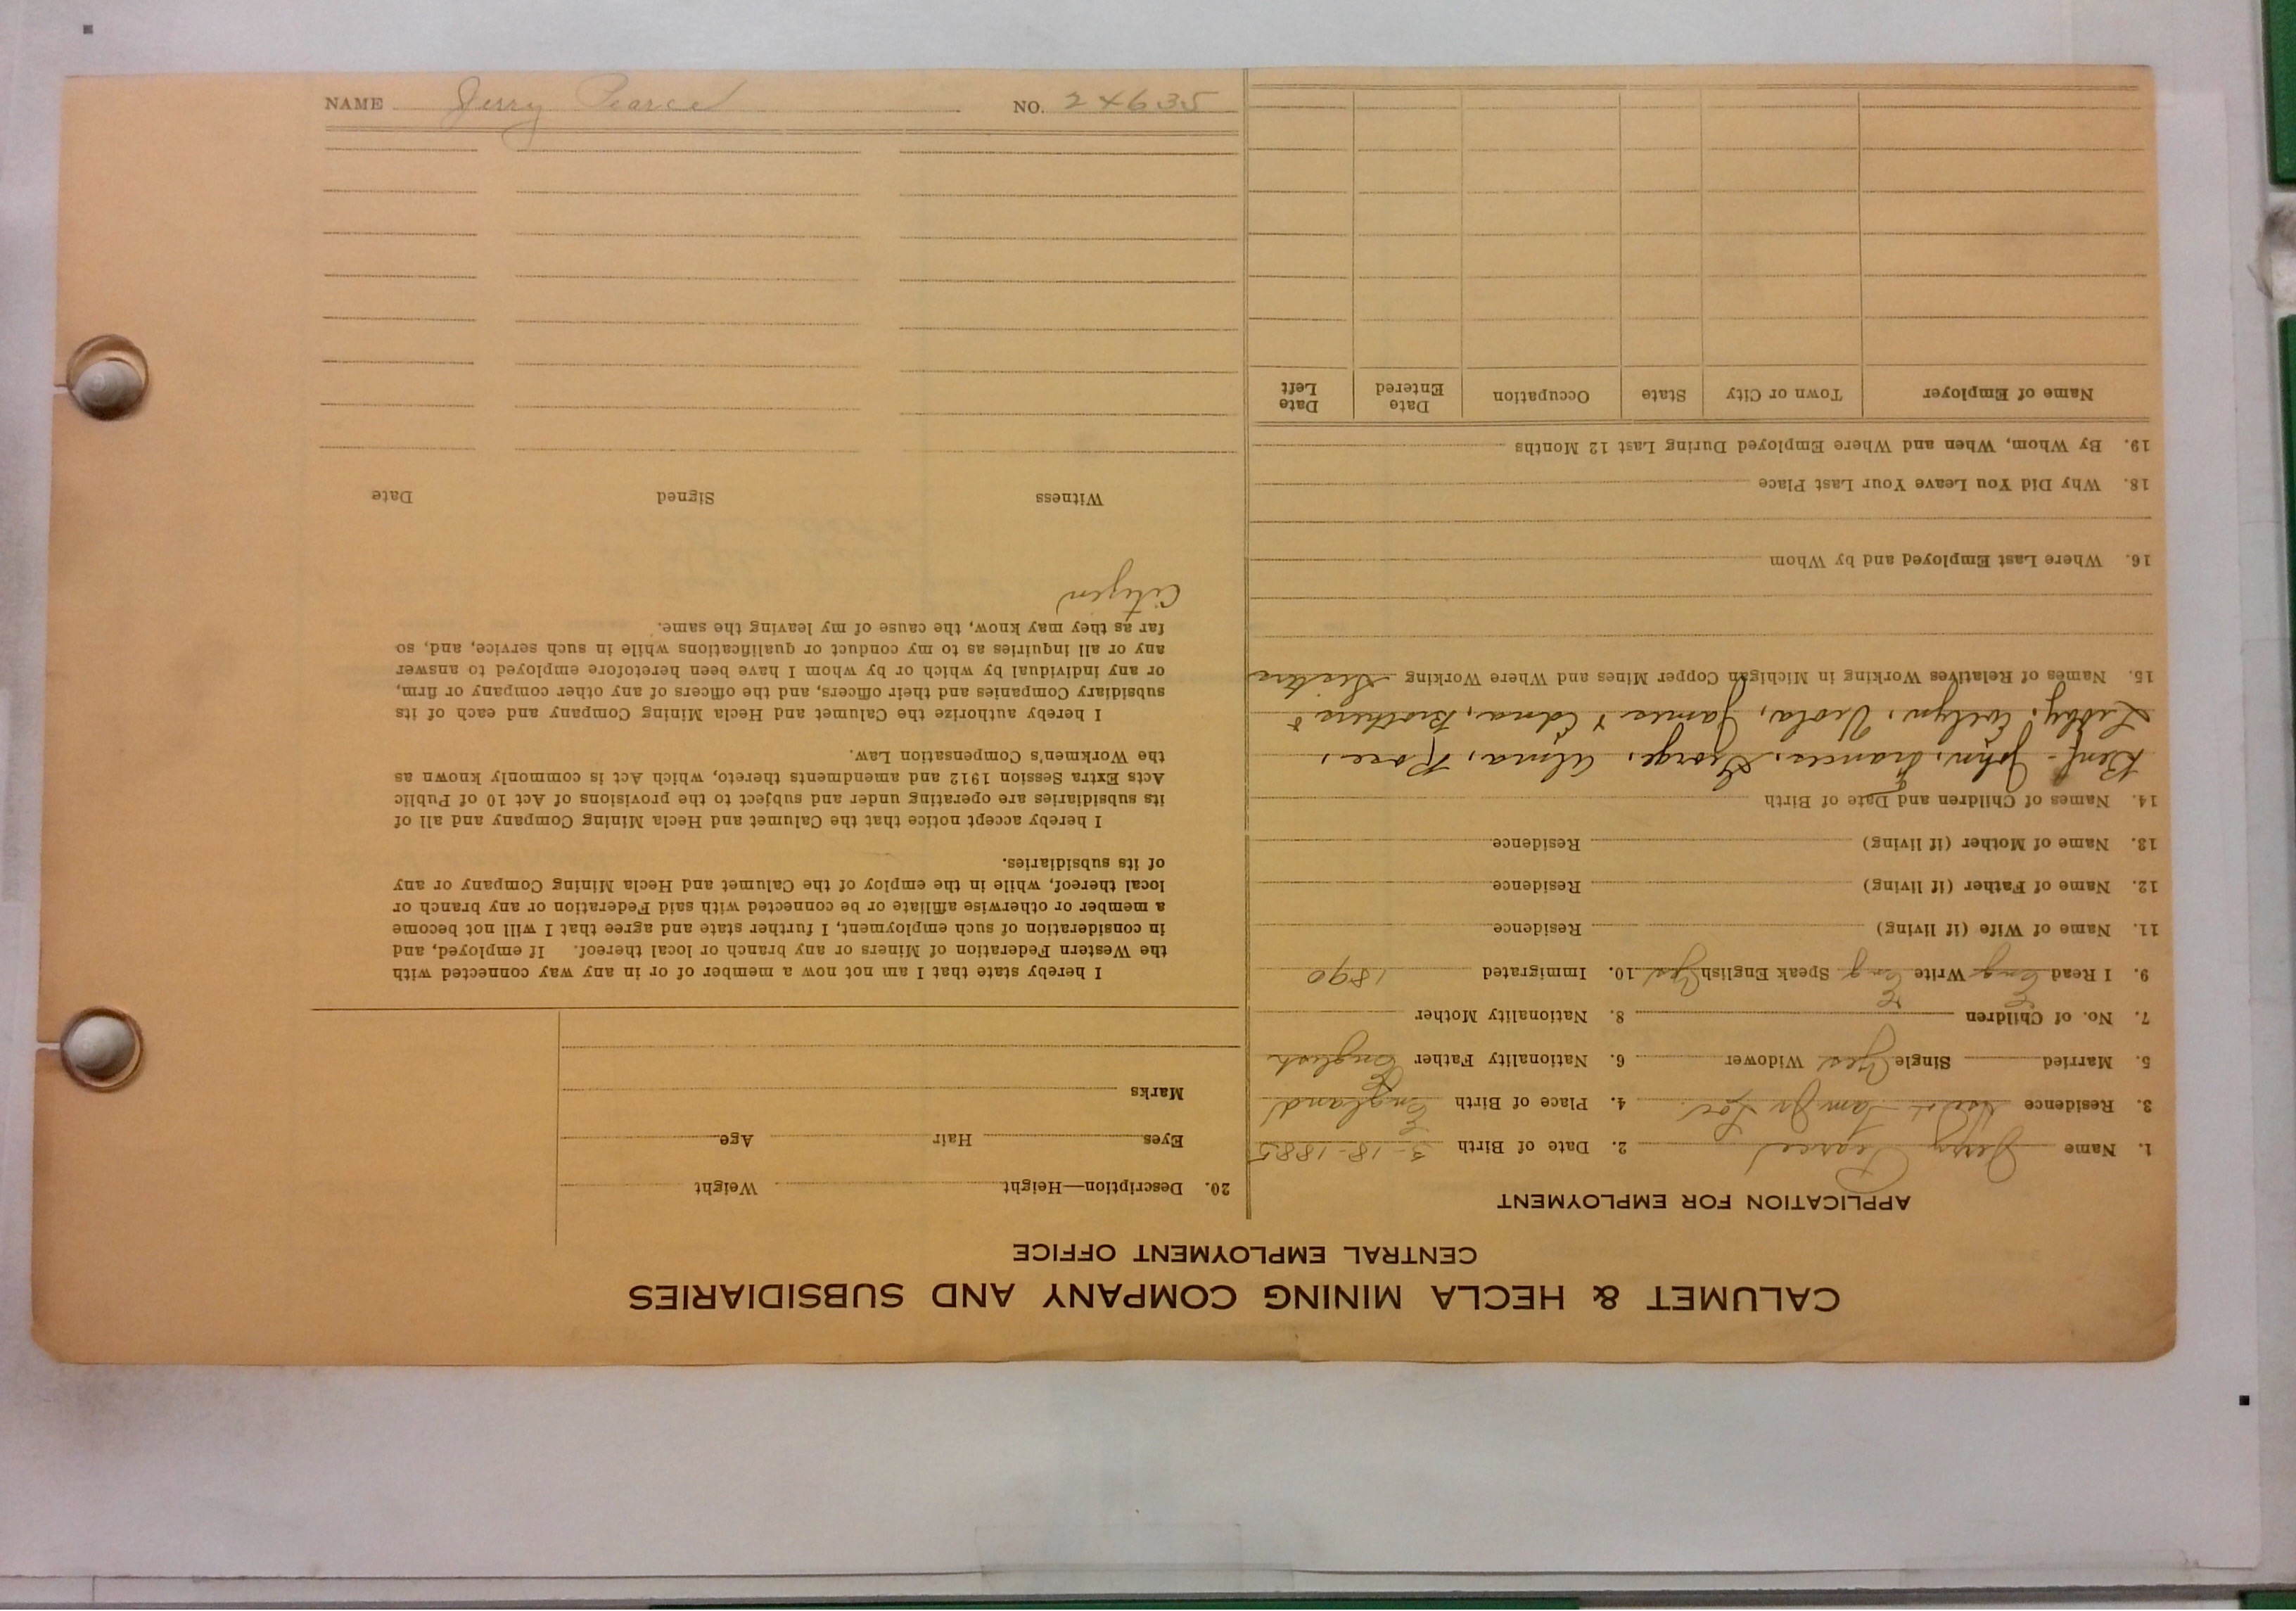 CALUMET & HECLA MINING COMPANY AND SUBSIDIARIES
CENTRAL EMPLOYMENT OFFICE
APPLICATION FOR EMPLOYMENT
1. Name Jerry Pearce 2. Date of Birth 3-18-1885
3. Residence Tam Jr Loc. 4. Place of Birth England
5. Married Single Yes Widower 6. Nationality Father English
7. No. of Children 8. Nationality Mother
9. I Read Eng Write Eng Speak English Yes 10. Immigrated 1890
11. Name of Wife (if living) Residence
12. Name of Father (if living) Residence
13. Name of Mother (if living) Residence
14. Names of Children and Date of Birth
Benf- John, Frances, George, Alma, Rose,
Libby, Evelyn, Viola, James & Edna, Brothers &
15. Names of Relatives Working in Michigan Copper Mines and Where Working Sisters
16. Where Last Employed and by Whom
18. Why Did You Leave Your Last Place
19. By Whom, When and Where Employed During Last 12 Months
Name of Employer Town or City State Occupation Date Entered Date Left
20. Description—Height Weight
Eyes Hair Age
Marks
I hereby state that I am not now a member of or in any way connected with
the Western Federation of Miners or any branch or local thereof. If employed, and
in consideration of such employment, I further state and agree that I will not become
a member or otherwise affiliate or be connected with said Federation or any branch or
local thereof, while in the employ of the Calumet and Hecla Mining Company or any
of its subsidiaries.
I hereby accept notice that the Calumet and Hecla Mining Company and all of
its subsidiaries are operating under and subject to the provisions of Act 10 of Public
Acts Extra Session 1912 and amendments thereto, which Act is commonly known as
the Workmen's Compensation Law.
I hereby authorize the Calumet and Hecla Mining Company and each of its
subsidiary Companies and their officers, and the officers of any other company or firm,
or any individual by which or by whom I have been heretofore employed to answer
any or all inquiries as to my conduct or qualifications while in such service, and, so
far as they may know, the cause of my leaving the same.
Citizen
Witness Signed Date
NAME Jerry Pearce NO. 24635